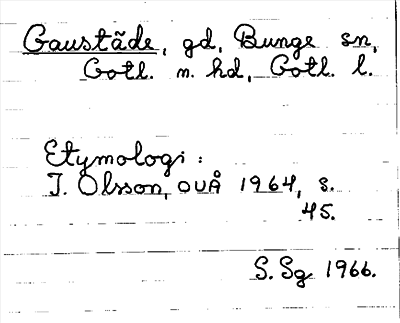 Gaustäde, gd, Bunge sn,
Gotl. n. hd, Gotl. l.
Etymologi:
I. Olsson, OUÅ 1964, s.
45.
S. Sg 1966.